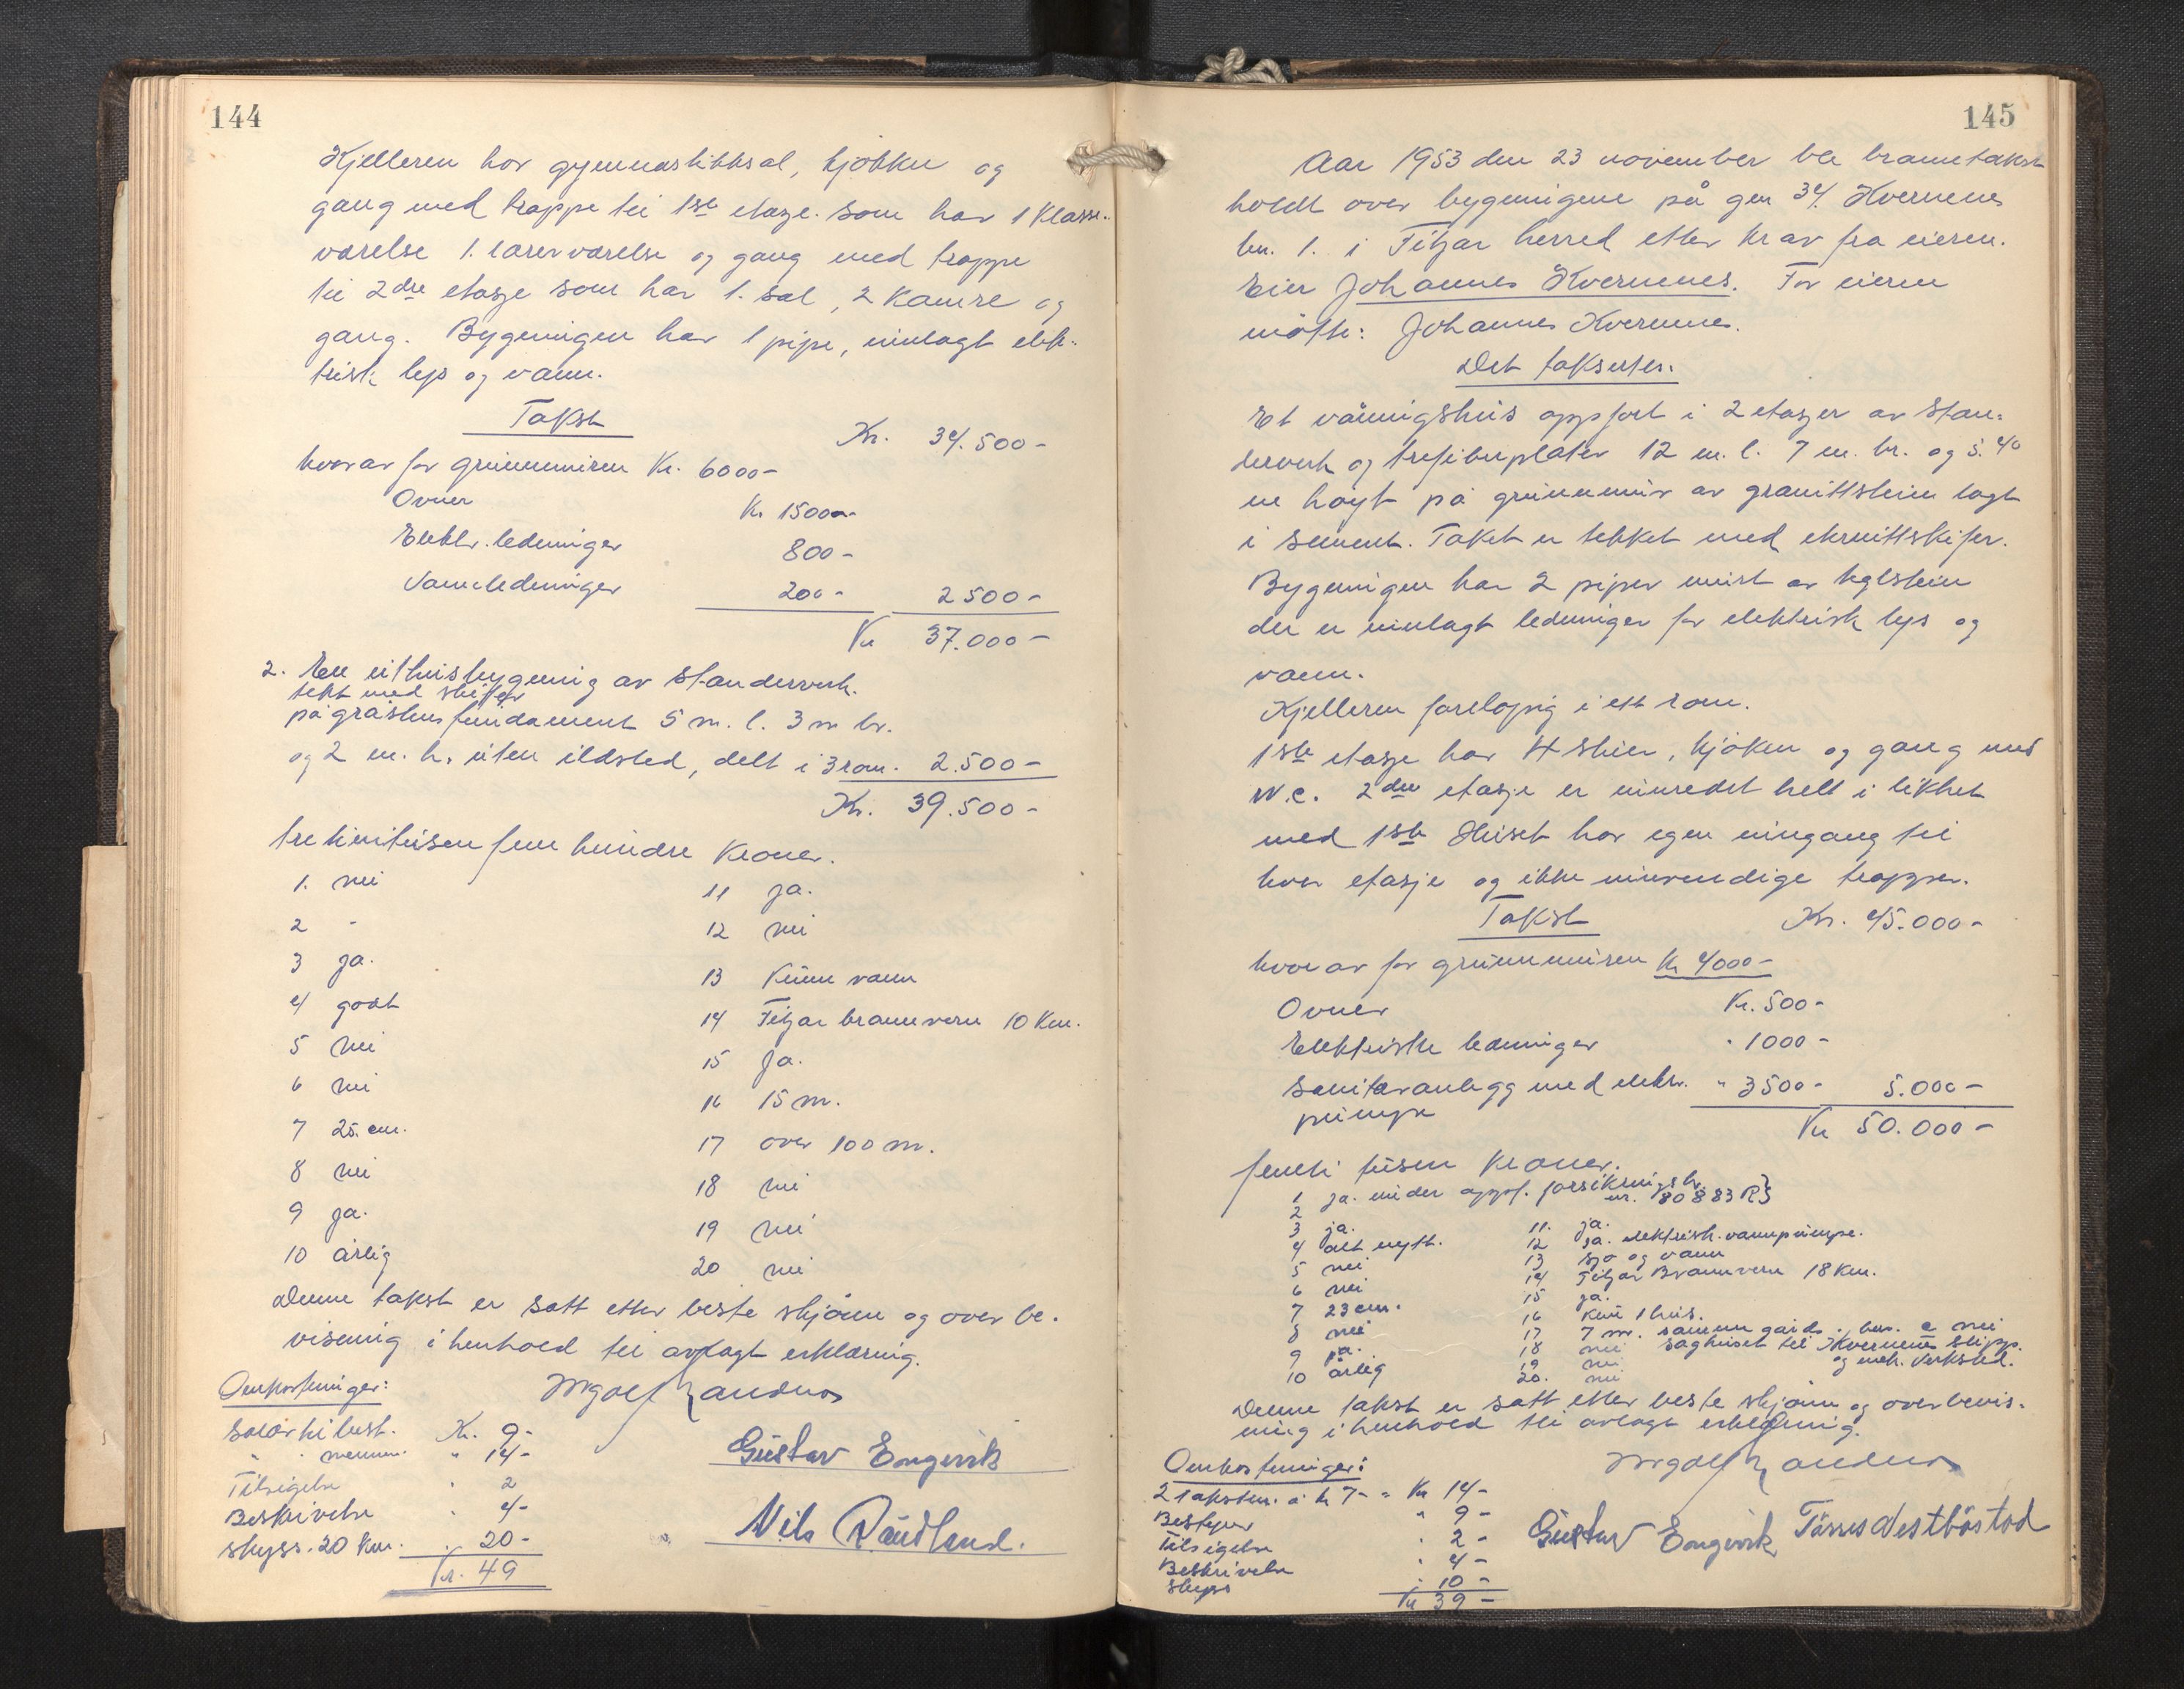 144
Kjelleren har gymnastikksal, kjøkken og
gang med trappe til 1ste etasje. som har 1 Klasse-
værelse 1. lærerværelse og gang med trappe
til 2dre etasje som har 1. sal, 2 Kamre og
gang. Bygningen har 1 pipe, innlagt elek-
trisk lys og vann.
Takst
Kr. 34.500-
hvorav for grunnmuren Kr. 6000-
Ovner Kr 1500-
Elektr. ledninger 800-
Vannledninger 200- 2500-
Kr 37.000-
2. En uthusbygning av standerverk.
tekt med skiffer
på gråstens fundament 5 m. l. 3 m br.
og 2 m. h. uten ildsted, delt i 3 rom. 2.500-
Kr. 39.500-
tre ti nitusen fem hundre Kroner.
1. nei
2 -
3 ja.
4 godt
5 nei
6 nei
7 25. cm.
8 nei
9 ja.
10 årlig
11 ja.
12 nei
13 Kunn vann
14 Fitjar brannvern 10 Km.
15 ja.
16 15 m.
17 over 100 m.
18 nei
19 nei
20 nei
Denne takst er satt etter beste skjønn og over be-
visning i henhold til avlagt erklæring.
Omkostninger:
Salær til best. Kr. 9-
" " " 14-
Tilsigelse " 2
Beskrivelse " 4-
skyss. 20 Km. " 20-
Kr. 49
Gustav Engevik
Nils Raudland.
145
Aar 1953 den 23 november ble branntakst
holdt over bygningene på gnr 34. Kvernenes
bn. 1. i Fitjar herred etter krav fra eieren.
Eier Johannes Kvernenes. For eieren
møtte: Johannes Kvernenes.
Det takseres.
Et våningshus oppført i 2 etasjer av stan-
derverk og trefiberplater 12 m. l. 7 m. br. og 5.40
m høyt på grunnmur av granittstein lagt
i sement. Taket er tekket med eternittskifer.
Bygningen har 2 piper murt av teglstein
der er innlagt ledninger for elektrisk lys og
vann.
Kjelleren foreløpig i ett rom.
1ste etasje har 4 stuer, kjøken og gang med
W.C. 2dre etasje er innredet helt i likhet
med 1ste Huset har egen inngang til
hver etasje og ikke innvendige trapper.
Takst Kr. 45.000-
hvorav for grunnmuren Kr 4000-
Ovner Kr. 500-
Elektriske ledninger " 1000-
Sanitæranlegg med elektr. " 3500- 5.000-
pumpe
Kr 50.000-
femti tusen Kroner.
1 ja. under oppf. forsikringsbr.
2 nr. 80883 R}
3 ja.
4 alt nytt.
5 nei
6 nei
7 23 cm.
8 nei
9 ja.
10 årlig
11. ja.
12 ja. elektrisk. vannpumpe.
13 sjø og vann
14 Fitjar Brannvern 18 Km.
15 ja.
16 Kun 1 hus.
17 7 m. samme gårds. bn. a nei
18 nei saghuset til Kvernenes slipp.
19 nei og mek. Verksted.
20. nei
Denne takst er satt etter beste skjønn og overbevis-
ning i henhold til avlagt erklæring.
Omkostninger:
2 takstm. à kr 7- = Kr 14-
Bestyrer " 9-
Tilsigelse " 2-
Beskrivelse " 4-
Skyss " 10-
Kr 39-
Gustav Engevik